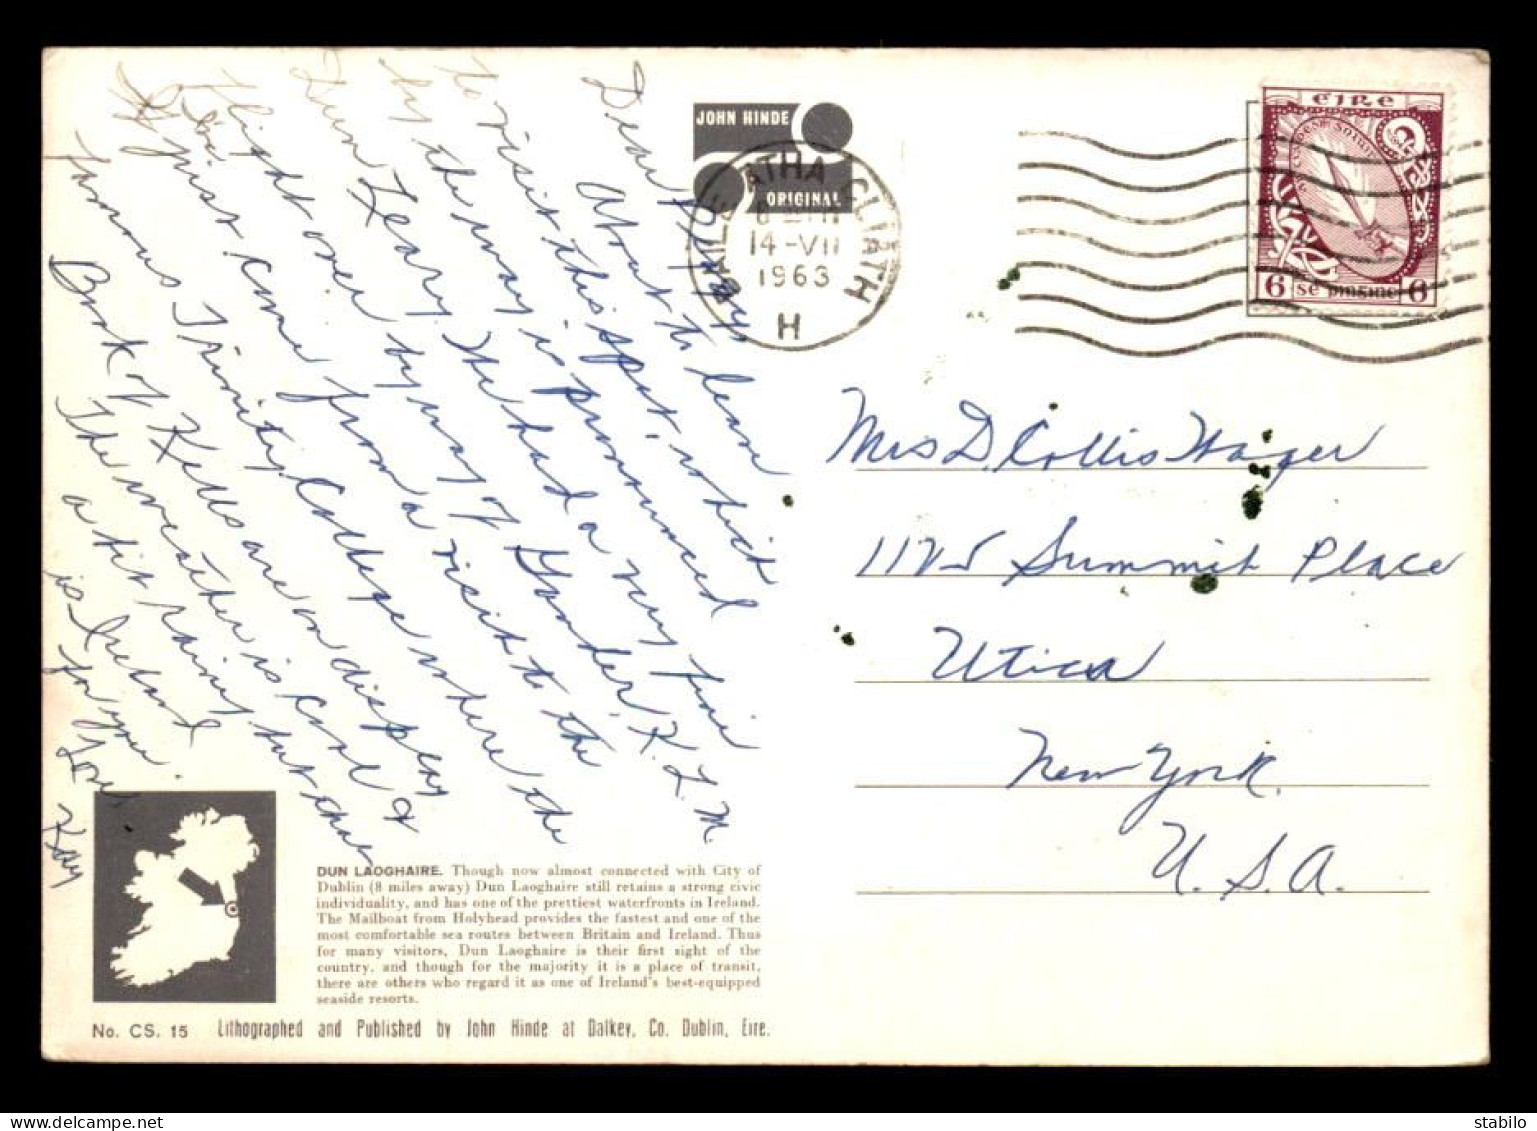 Dear
About to leave
to visit this spot, which
by the way is pronounced
Dun Leary. We had a very fine
flight over by way of Gander, K.L.M.
just come from a visit to the
famous Trinity College where the
Book of Kells are on display
The weather is cool &
a bit rainy but that
is Ireland
for you.
Love
Kay
JOHN HINDE
ORIGINAL
BAILE ATHA CLIATH
14-VII
1963
H
EIRE
6 se pingine 6
Mrs D. Collis Wager
1125 Summit Place
Utica
New York.
U. S. A.
DUN LAOGHAIRE. Though now almost connected with City of
Dublin (8 miles away) Dun Laoghaire still retains a strong civic
individuality, and has one of the prettiest waterfronts in Ireland.
The Mailboat from Holyhead provides the fastest and one of the
most comfortable sea routes between Britain and Ireland. Thus
for many visitors, Dun Laoghaire is their first sight of the
country, and though for the majority it is a place of transit,
there are others who regard it as one of Ireland's best-equipped
seaside resorts.
No. CS. 15 Lithographed and Published by John Hinde at Dalkey, Co. Dublin, Eire.
stabilo